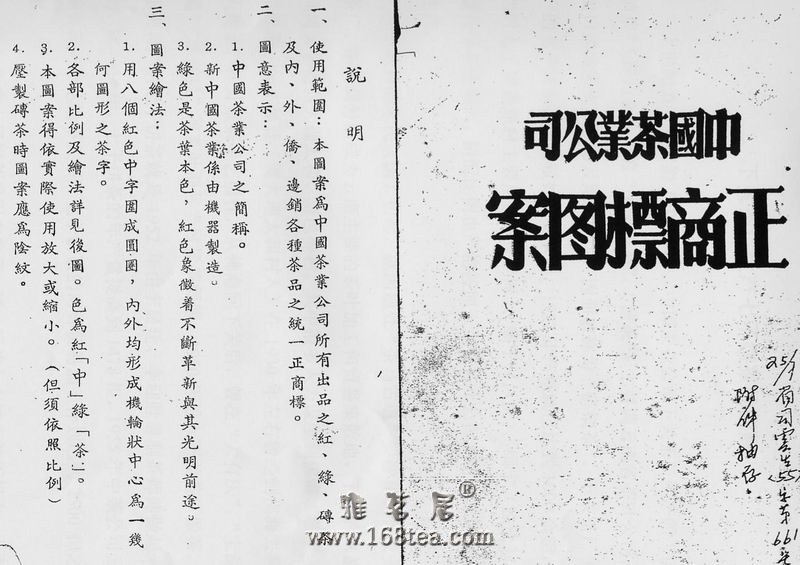 中國茶業公司
正商標图案
附件抽存。
說明
一、使用範圍：本圖案為中國茶業公司所有出品之紅、綠、磚茶
及內、外、僑、邊銷各種茶品之統一正商標。
二、圖意表示：
1. 中國茶業公司之簡稱。
2. 新中國茶業係由機器製造。
3. 綠色是茶葉本色，紅色象徵着不斷革新與其光明前途。
三、圖案繪法：
1. 用八個紅色中字圍成圓圈，內外均形成機輪狀中心為一幾
何圖形之茶字。
2. 各部比例及繪法詳見後圖。色為紅「中」綠「茶」。
3. 本圖案得依實際使用放大或縮小。（但須依照比例）
4. 壓製磚茶時圖案應為陰紋。
雅茗居®
www.168tea.com